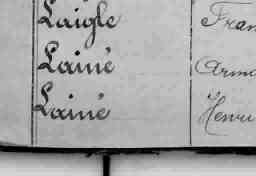 Laigle Fran
Lainé Arma
Lainé Henri